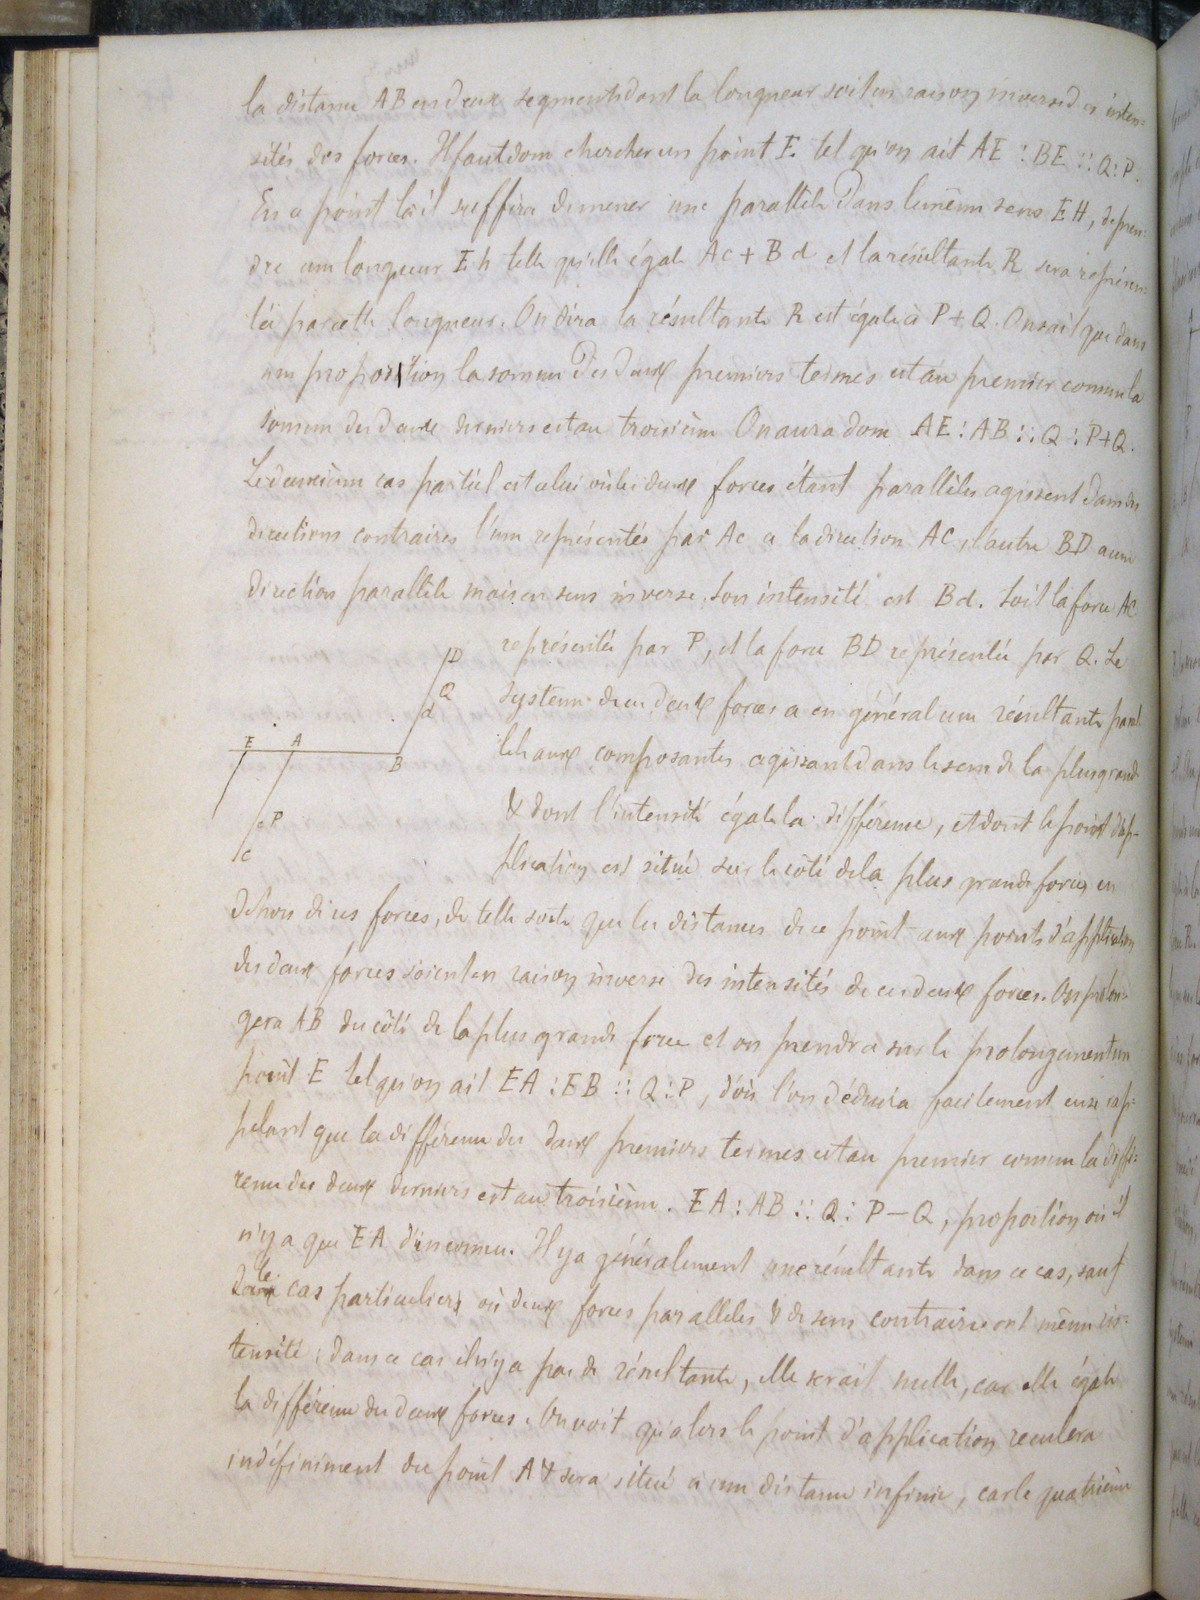 la distance AB en deux segments dont la longueur soit en raison inverse des inten-
sités des forces. Il faut donc chercher un point E tel qu'on ait AE : BE :: Q : P.
En ce point là il suffira de mener une parallèle dans le même sens EH, de pren-
dre une longueur Eh telle qu'elle égale Ac + Bd et la résultante R sera représen-
tée par cette longueur. On dira la résultante R est égale à P + Q. On sait que dans
une proportion la somme des deux premiers termes est au premier comme la
somme des deux derniers est au troisième On aura donc AE : AB :: Q : P+Q.
Le deuxième cas partiel est celui où les deux forces étant parallèles agissent dans des
directions contraires l'une représentée par Ac a la direction AC, l'autre BD a une
direction parallèle mais en sens inverse, son intensité est Bd. Soit la force AC
représentée par P, et la force BD représentée par Q. Le
système de ces deux forces a en général une résultante paral
lèle aux composantes agissant dans le sens de la plus grande
& dont l'intensité égale la différence, et dont le point d'ap-
plication est situé sur le côté de la plus grande force, en
dehors de ces forces, de telle sorte que les distances de ce point aux points d'application
des deux forces soient en raison inverse des intensités de ces deux forces. On prolon-
gera AB du côté de la plus grande force et on prendra sur le prolongement un
point E tel qu'on ait EA : EB :: Q : P, d'où l'on déduira facilement en se rap-
pelant que la différence des deux premiers termes est au premier comme la diffé-
rence des deux derniers est au troisième. EA : AB :: Q : P — Q, proportion où il
n'y a que EA d'inconnu. Il y a généralement une résultante dans ce cas, sauf
le cas particulier où deux forces parallèles & de sens contraire ont même in-
tensité ; dans ce cas il n'y a pas de résultante, elle serait nulle, car elle égale
la différence des deux forces. On voit qu'alors le point d'application reculera
indéfiniment du point A & sera situé à une distance infinie, car le quatrième
D
Q
d
E A
B
c P
C